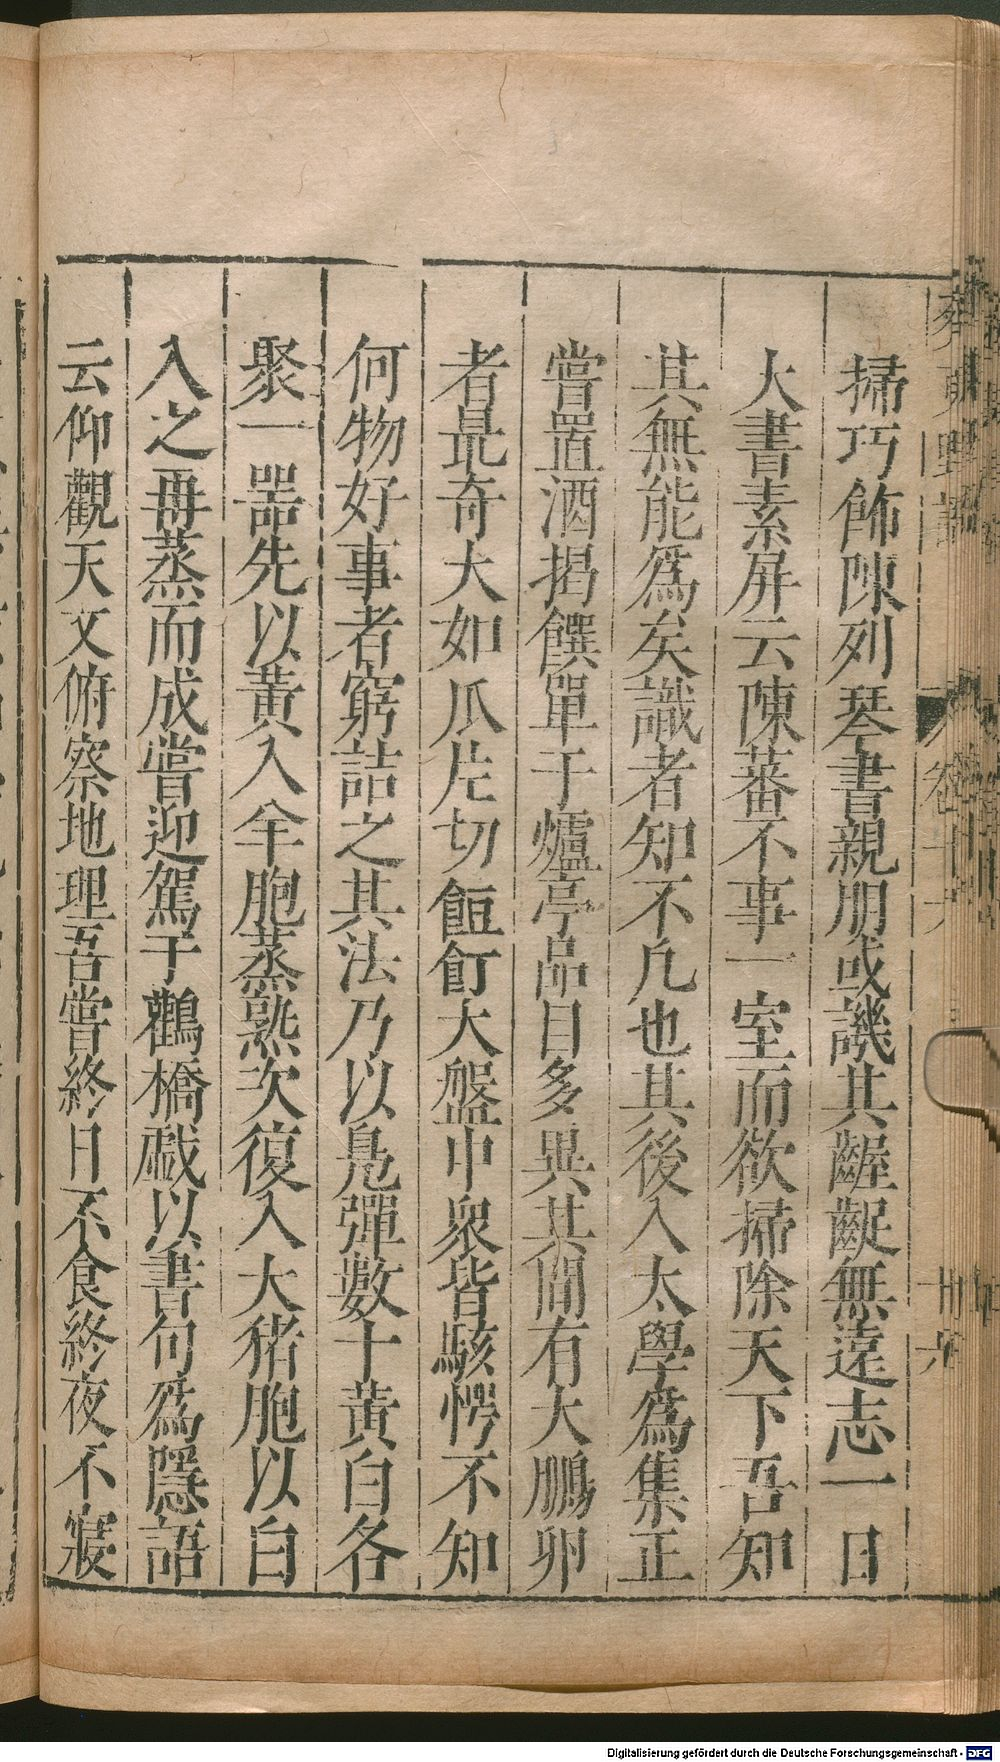 掃巧飾陳列琴書親朋或譏其齷齪無遠志一日
大書素屏云陳蕃不事一室而欲掃除天下吾知
其無能爲矣識者知不凡也其後入太學爲集正
嘗置酒揭饌單于爐亭品目多異其間有大鵬卵
者最奇大如瓜片切餖飣大盤中衆皆駭愕不知
何物好事者窮詰之其法乃以鳬彈數十黄白各
聚一器先以黄入羊胞蒸熟次復入大猪胞以白
入之再蒸而成嘗迎駕于鸛橋戯以書句爲隱語
云仰觀天文俯察地理吾嘗終日不食終夜不寢
Digitalisierung gefördert durch die Deutsche Forschungsgemeinschaft - DFG